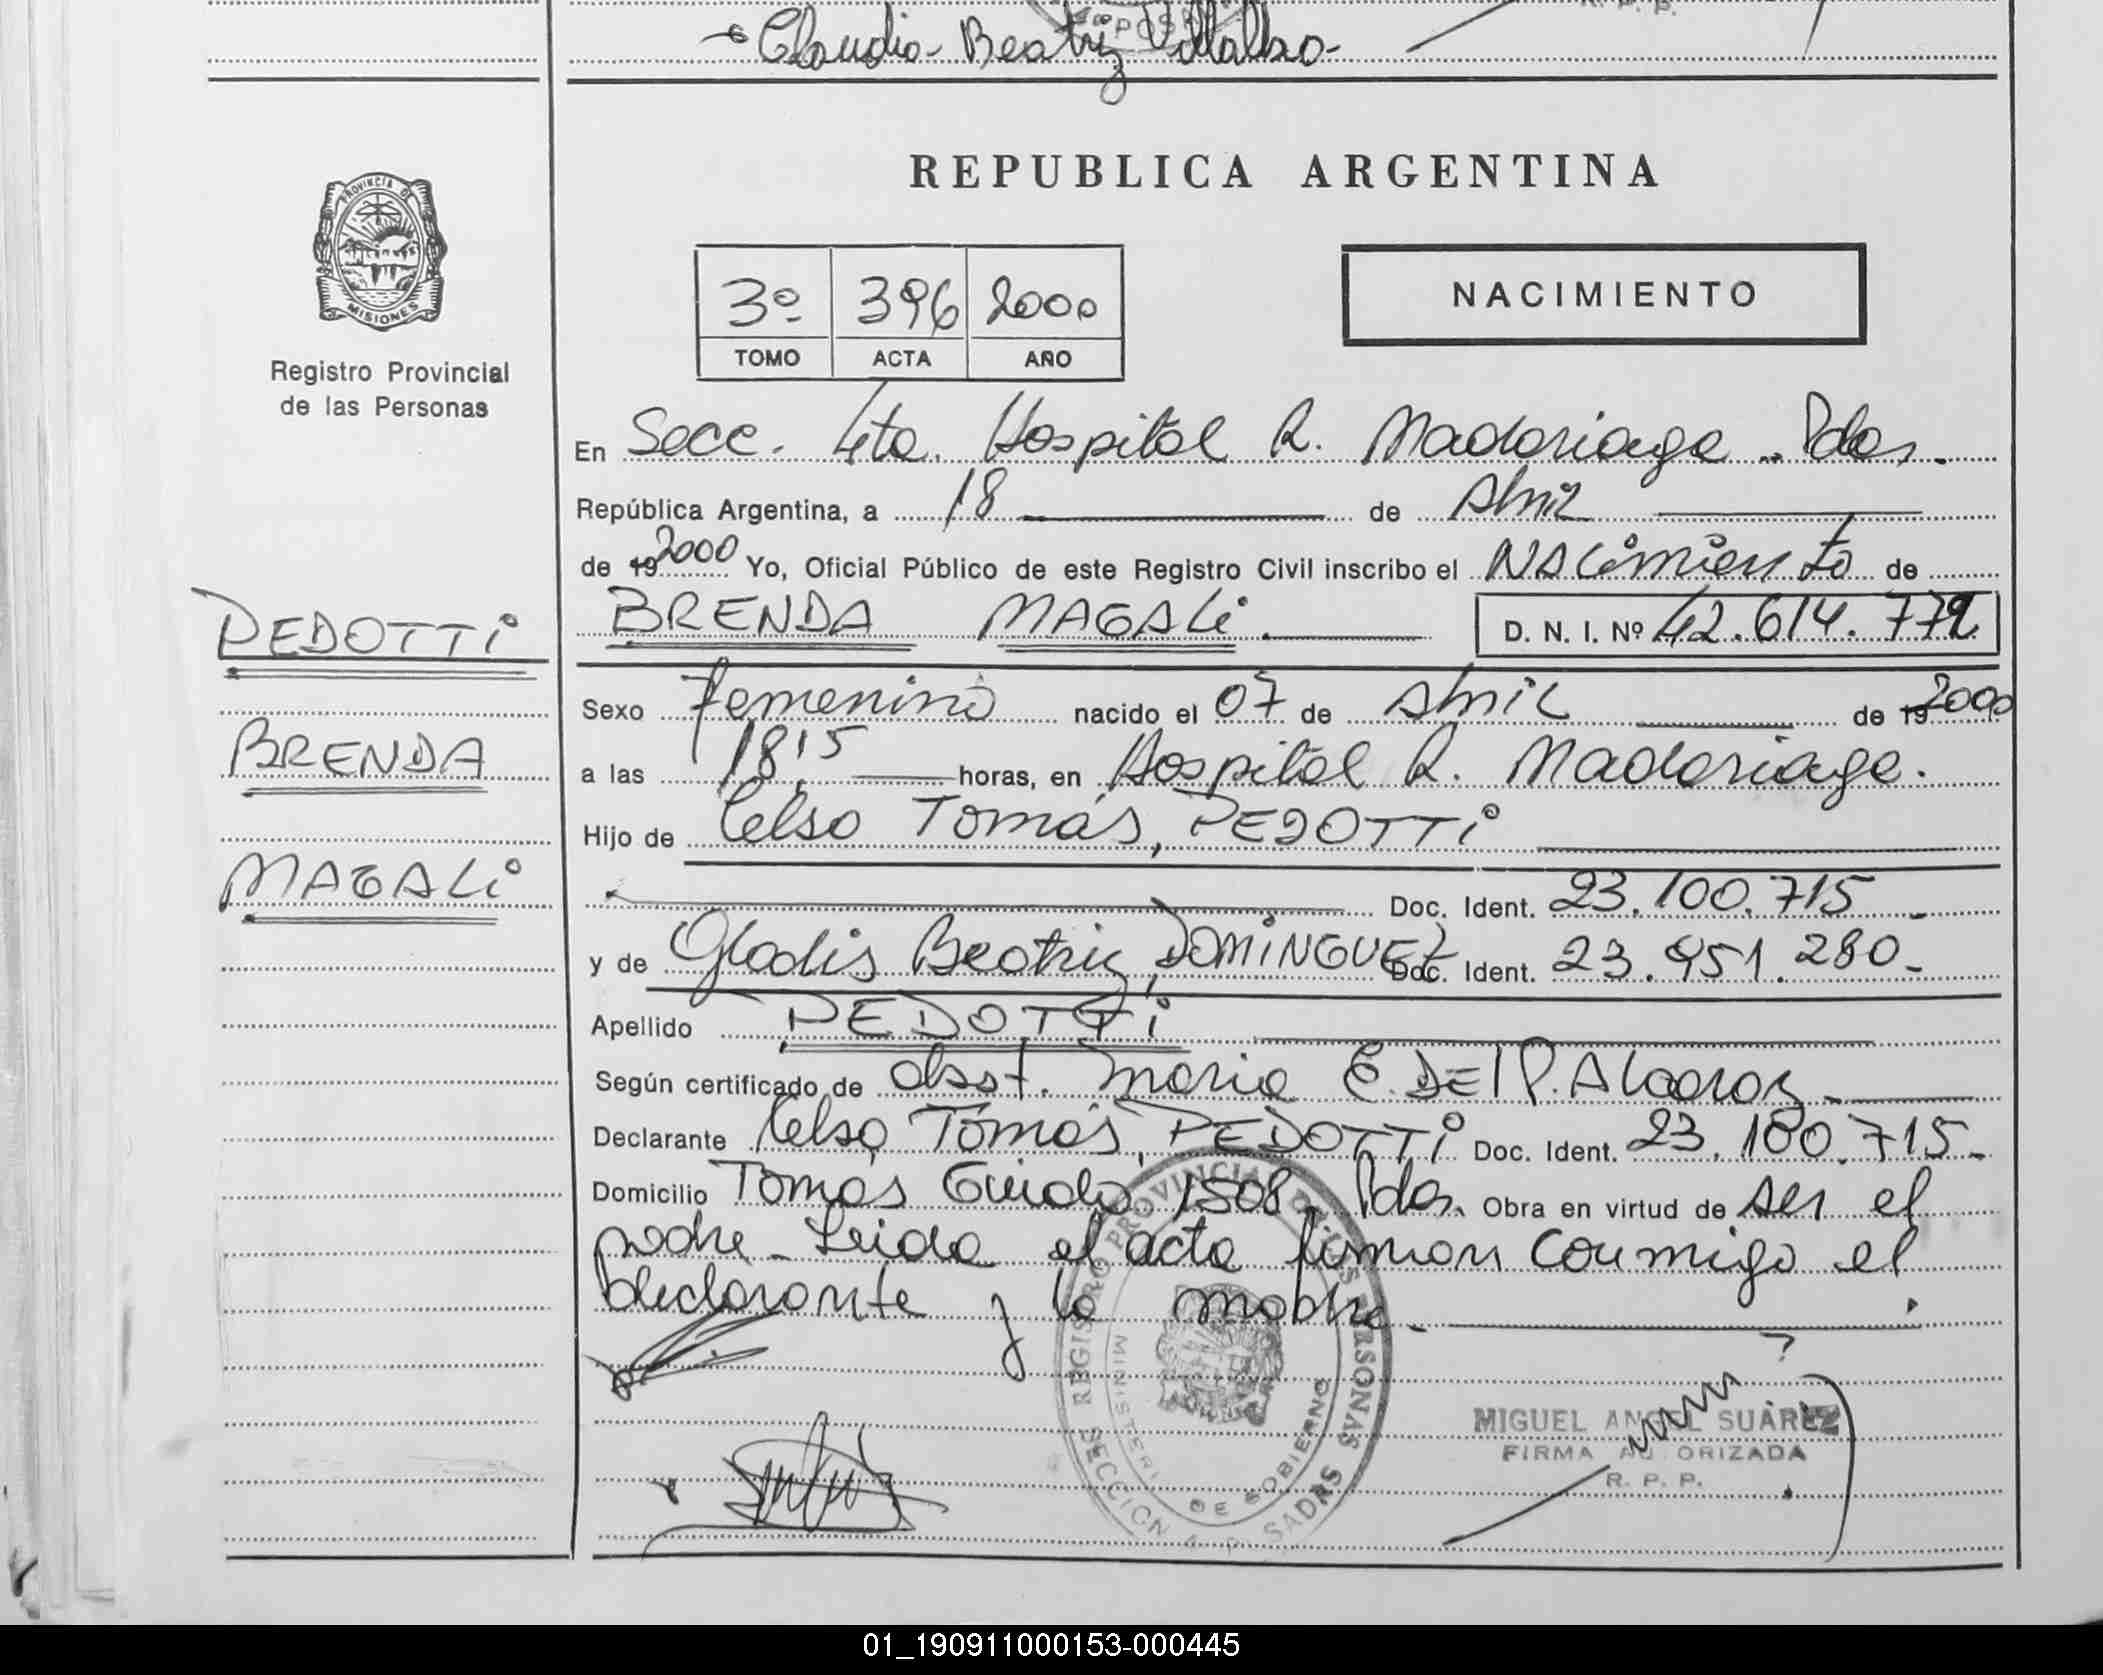 Claudia Beatriz Villalba-
REPUBLICA ARGENTINA
PROVINCIA DE
MISIONES
3º 396 2000
TOMO ACTA AÑO
NACIMIENTO
Registro Provincial
de las Personas
En Secc. 4ta. Hospital R. Madariaga - Pdas.
República Argentina, a 18 de Abril
de 19 2000 Yo, Oficial Público de este Registro Civil inscribo el NACimiento de
PEDOTTi
BRENDA MAGALi. D. N. I. Nº 42.614.772
Sexo Femenino nacido el 07 de Abril de 19 2000
BRENDA
a las 18,15 horas, en Hospital R. Madariaga.
Hijo de Celso Tomás, PEDOTTi
MAGALi
Doc. Ident. 23.100.715
y de Gladis Beatriz, DOMiNGUEZ Doc. Ident. 23.951.280-
Apellido PEDOTTi
Según certificado de obst. Maria E. DEL P. Alcaraz -
Declarante Celso Tomás, PEDOTTi Doc. Ident. 23.100.715-
Domicilio Tomás Guido 1508 Pdas. Obra en virtud de ser el
padre - Leida el acta firman conmigo el
declarante y la madre -
REGISTRO PROVINCIAL DE LAS PERSONAS
MINISTERIO DE GOBIERNO
MIGUEL ANGEL SUÁREZ
FIRMA AUTORIZADA
R. P. P.
01_190911000153-000445